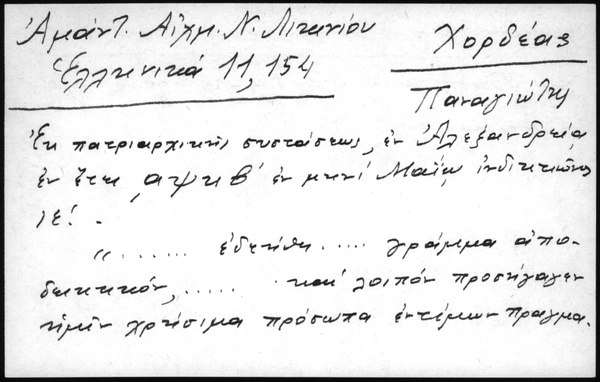 Ἀμάντ. Αἰχμ. Ν. Λιτινίου
Ἑλληνικά 11, 154
Χορδέας
Παναγιώτης
Ἐκ πατριαρχικῆς συστάσεως, ἐν Ἀλεξανδρείᾳ
ἐν ἔτει ͵αψκβ' ἐν μηνί Μαΐῳ ἰνδικτιῶνος
ιε'. -
"...... ἐδετήθη ..... γράμμα ἀπο-
δεικτικόν, ...... καί λοιπόν προσήγαγεν
ἡμῖν χρήσιμα πρόσωπα ἐντίμων πραγμα.